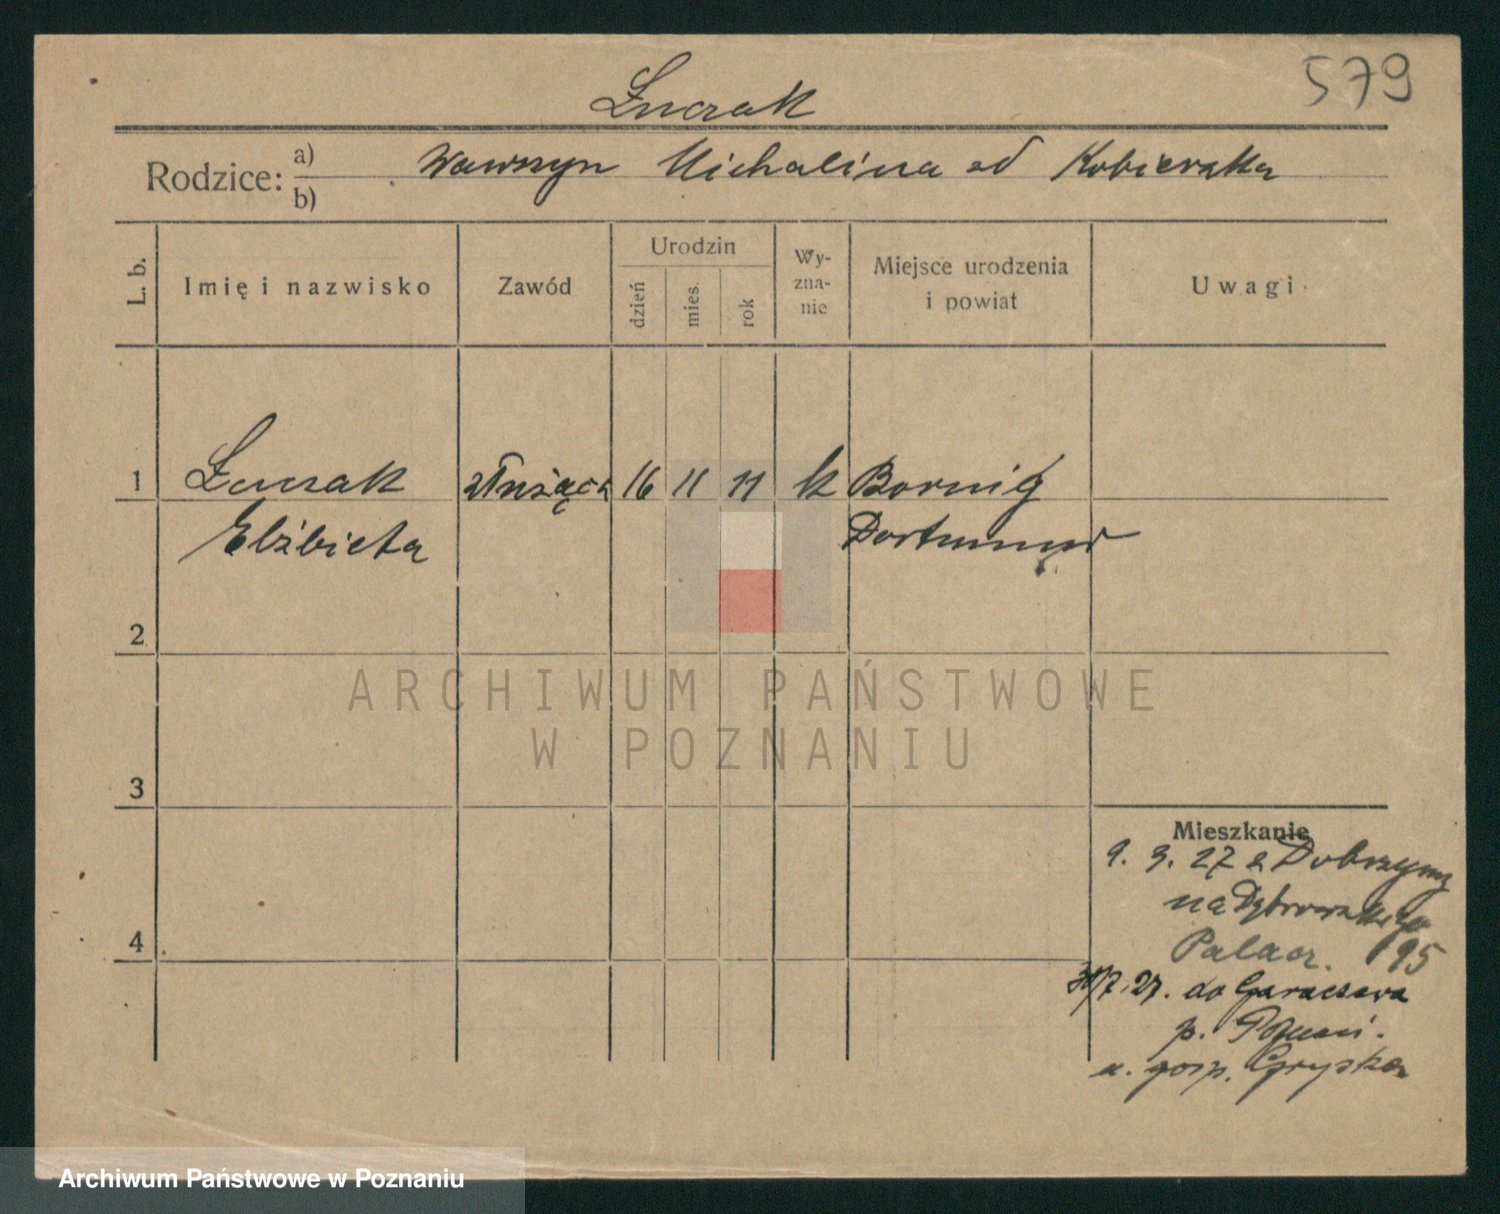 579
Łuczak
Rodzice: a) Wawrzyn Michalina od
b)
L. b.
Imię i nazwisko
Zawód
Urodzin
dzień
mies.
rok
Wy-
zna-
nie
Miejsce urodzenia
i powiat
Uwagi
1 Łuczak służąca 16 11 11 k Bornig
Elżbieta Dortmund
2
3
4
ARCHIWUM PAŃSTWOWE
W POZNANIU
Mieszkanie
9. 3. 27 z Dobrzyny
na
Palacz. 95
30/7. 27. do
p. Poznań.
u. gosp.
Archiwum Państwowe w Poznaniu